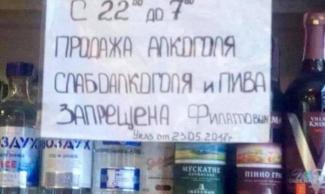 С 22⁰⁰ до 7⁰⁰
ПРОДАЖА АЛКОГОЛЯ
СЛАБОАЛКОГОЛЯ и ПИВА
ЗАПРЕЩЕНА ФИЛАТОВЫМ
Указ от 25.05.2017г
ВОЗДУХ
МУСКАТНЕ
ПІННО ГРА